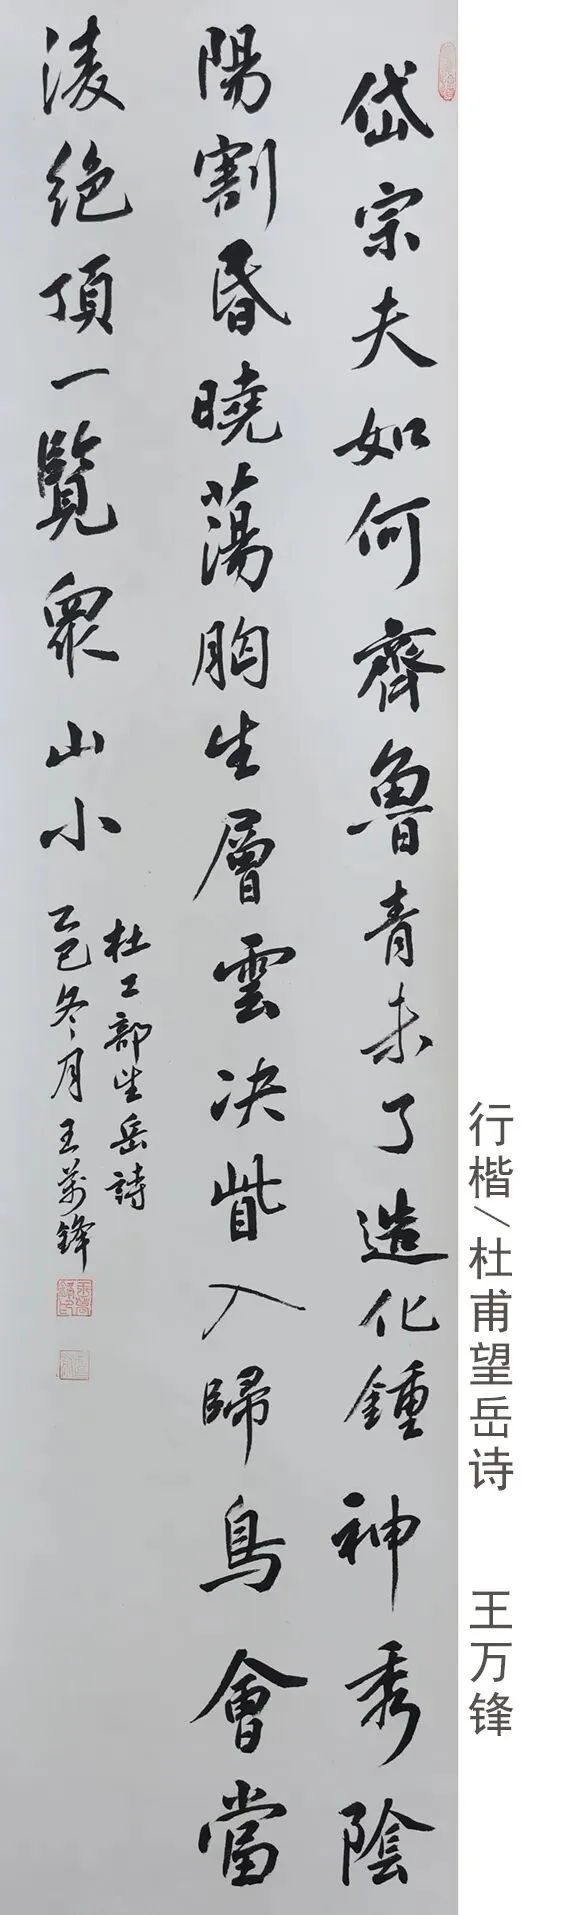 岱宗夫如何齊魯青未了造化鍾神秀陰
陽割昏曉蕩胸生層雲决眥入歸鳥會當
淩絶頂一覽衆山小
杜工部望岳詩
乙巳冬月王萬鋒
行楷/杜甫望岳诗 王万锋